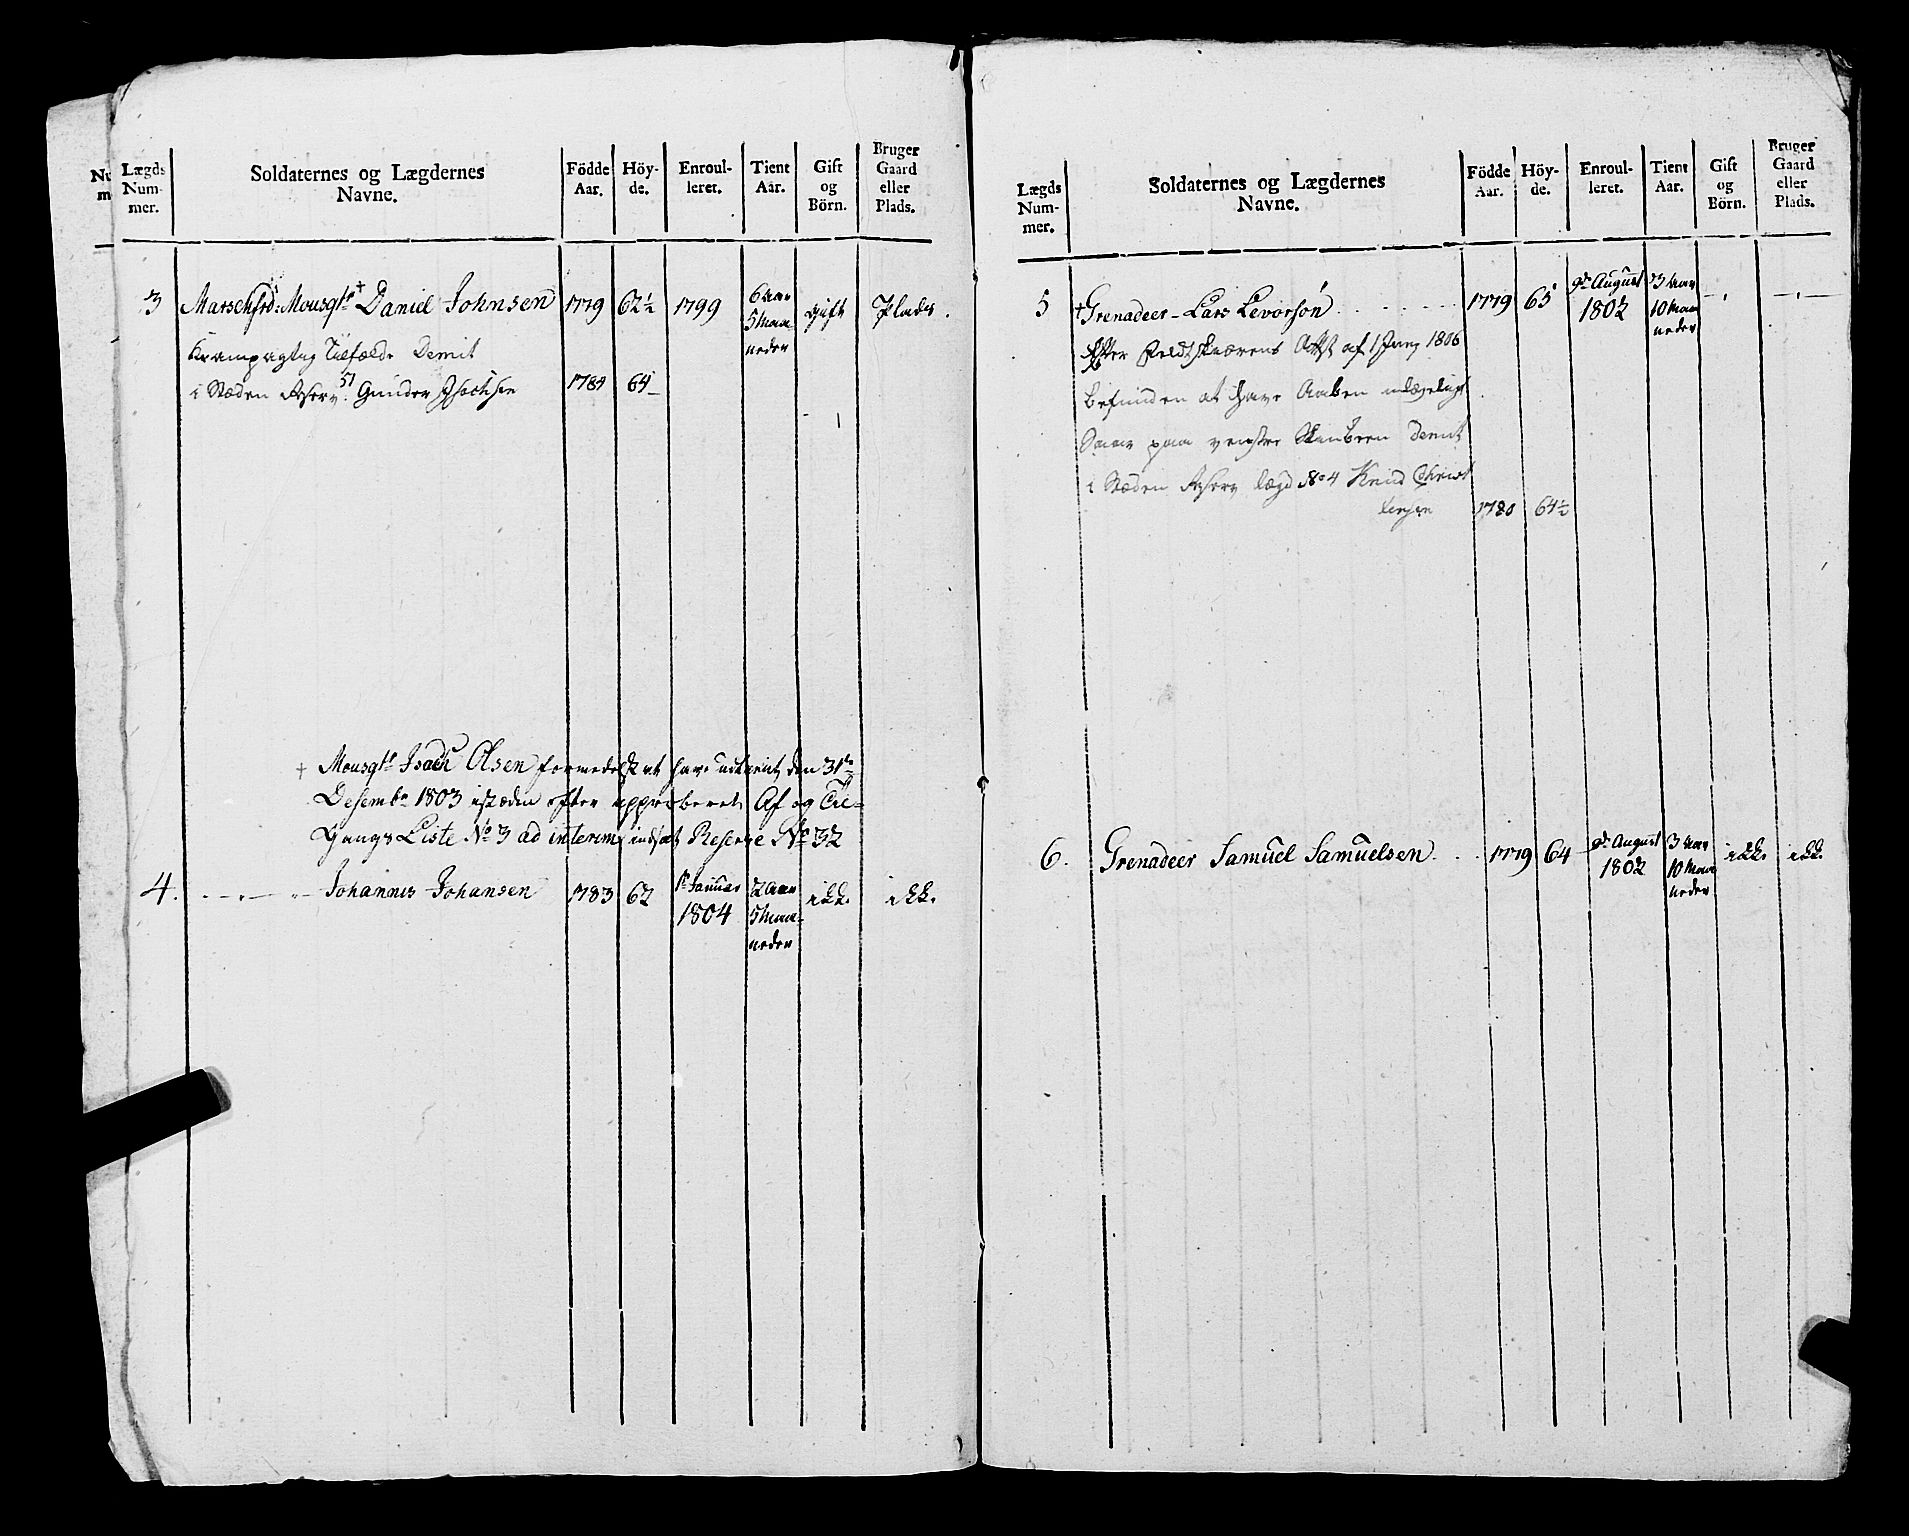 Lægds Num- mer.
Soldaternes og Lægdernes Navne.
Födde Aar.
Höy- de.
Enroul- leret.
Tient Aar.
Gift og Börn.
Bruger Gaard eller Plads.
3 Marschfrd: Mousqtr † Daniel Johnsen 1779 62½ 1799 6 Aar 5 Maa- neder gift Plads.
Krampagtig Tilfælde Demit
i Stæden Reserv: 51 Gunder Isachsen 1784 64
† Mousqtr Isach Olsen formedelst at have udtient den 31te
Desembr 1803 istæden efter approberet Af og Til-
Gangs Liste No 3 ad interim indsat Reserve No 32
4. Johannis Johansen 1783 62 1te Januar 1804 2 Aar 5 Maa- neder ikk. ikk.
Lægds Num- mer.
Soldaternes og Lægdernes Navne.
Födde Aar.
Höy- de.
Enroul- leret.
Tient Aar.
Gift og Börn.
Bruger Gaard eller Plads.
5 † Grenadeer - Lars Levorsön 1779 65 August 1802 3 Aar 10 Maa neder
Efter Feldtskærens Attst af 1 Jang 1806
befunden at have Aaben ulægeligt
Saar paa venstre Skinbeen Demit
i Stæden Reserv Lægd No 4 Knud Christ
lensen 1780 64½
6. Grenadeer Samuel Samuelsen 1779 64 August 1802 3 Aar 10 Maa neder ikk. ikk.